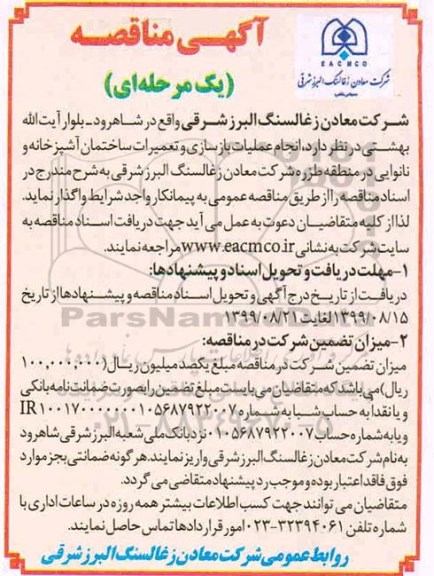 آگهی مناقصه
(یک مرحله‌ای)
EACMCO
شرکت معادن زغالسنگ البرز شرقی
شرکت معادن زغالسنگ البرز شرقی واقع در شاهرود-بلوار آیت الله
بهشتی در نظر دارد، انجام عملیات بازسازی و تعمیرات ساختمان آشپزخانه و
نانوایی در منطقه طزره شرکت معادن زغالسنگ البرز شرقی به شرح مندرج در
اسناد مناقصه را از طریق مناقصه عمومی به پیمانکار واجد شرایط واگذار نماید.
لذا از کلیه متقاضیان دعوت به عمل می آید جهت دریافت اسناد مناقصه به
سایت شرکت به نشانی www.eacmco.ir مراجعه نمایند.
۱-مهلت دریافت و تحویل اسناد و پیشنهادها:
دریافت از تاریخ درج آگهی و تحویل اسناد مناقصه و پیشنهادها از تاریخ
۱۳۹۹/۰۸/۱۵ لغایت ۱۳۹۹/۰۸/۲۱
۲-میزان تضمین شرکت در مناقصه:
میزان تضمین شرکت در مناقصه مبلغ یکصد میلیون ریال (۱۰۰,۰۰۰,۰۰۰
ریال) می باشد که متقاضیان می بایست مبلغ تضمین را بصورت ضمانت نامه بانکی
و یا نقداً به حساب شبا به شماره IR ۱۰۰۱۷۰۰۰۰۰۰۰۱۰۵۶۸۷۹۲۲۰۰۷
و یا به شماره حساب ۰۱۰۵۶۸۷۹۲۲۰۰۷ نزد بانک ملی شعبه البرز شرقی شاهرود
به نام شرکت معادن زغالسنگ البرز شرقی واریز نمایند. هر گونه ضمانتی بجز موارد
فوق فاقد اعتبار بوده و موجب رد پیشنهاد متقاضی می گردد.
متقاضیان می توانند جهت کسب اطلاعات بیشتر همه روزه در ساعات اداری با
شماره تلفن ۰۲۳-۳۲۳۹۴۰۶۱ امور قراردادها تماس حاصل نمایند.
روابط عمومی شرکت معادن زغالسنگ البرز شرقی